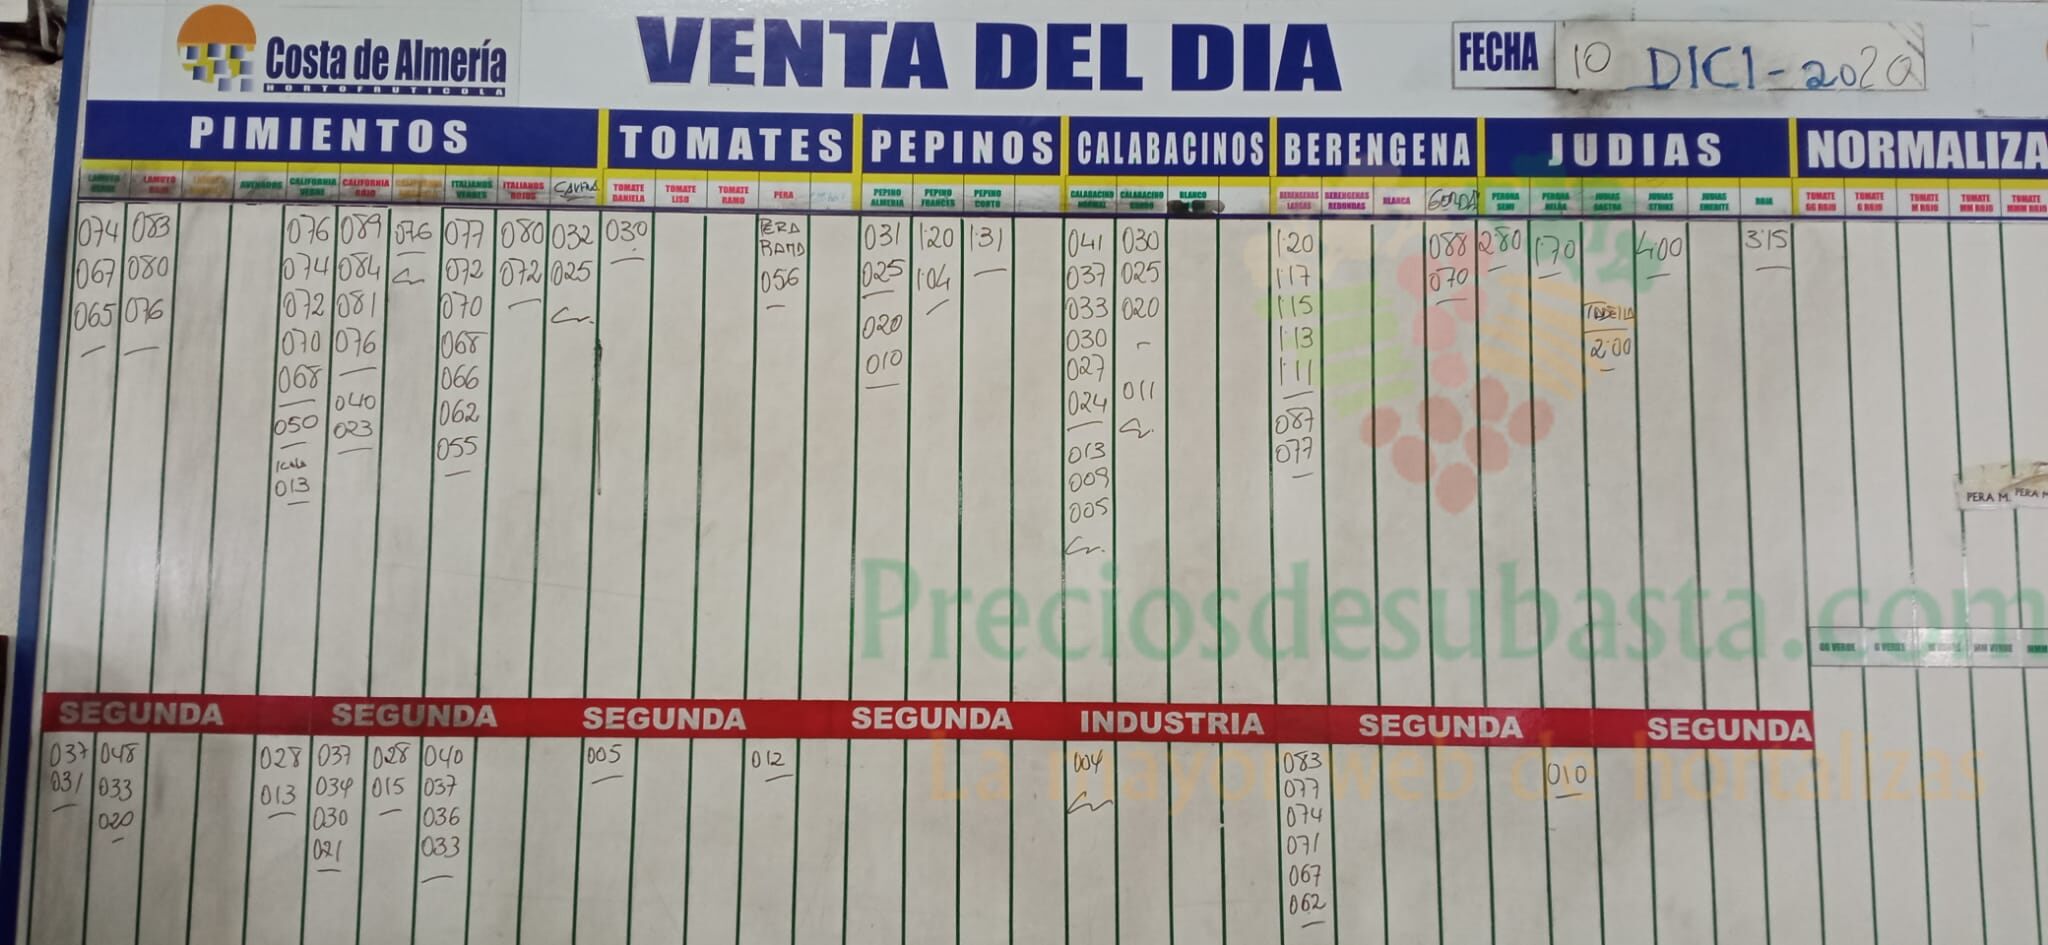 Costa de Almería
HORTOFRUTICOLA
VENTA DEL DIA
FECHA 10 DICI-2020
PIMIENTOS TOMATES PEPINOS CALABACINOS BERENGENA JUDIAS NORMALIZA
LAMUYO VERDE LAMUYO ROJO CALIFORNIA VERDE CALIFORNIA ROJO ITALIANOS VERDES ITALIANOS ROJOS TOMATE DANIELA TOMATE LISO TOMATE RAMO PERA PEPINO ALMERIA PEPINO FRANCES PEPINO CORTO CALABACINO NORMAL CALABACINO GORDO BLANCO BERENGENAS LARGAS BERENGENAS REDONDAS BLANCA GORDA PERONA SEMI PERONA JUDIAS JUDIAS STRIKE JUDIAS EMERITE ROJA TOMATE GG ROJO TOMATE G ROJO TOMATE M ROJO TOMATE MM ROJO TOMATE MMM ROJO
074 083 076 089 076 077 080 032 030 PERA RAMO 031 1:20 1:31 041 030 1:20 088 280 1:70 4:00 3:15
067 080 074 084 072 072 025 056 025 1:04 037 025 1:17 070
065 076 072 081 070 020 033 020 1:15
070 076 068 010 030 1:13 2:00
068 066 027 1:11
040 062 024 011
050 023 055 087
013 077
013 009
005
PERA M. PERA M
Preciosdesubasta.com
GG VERDE G VERDE M VERDE MM VERDE MMM
SEGUNDA SEGUNDA SEGUNDA SEGUNDA INDUSTRIA SEGUNDA SEGUNDA
La mayor web de hortalizas
037 048 028 037 028 040 005 012 004 083 010
031 033 013 034 015 037 077
020 030 036 074
021 033 071
067
062